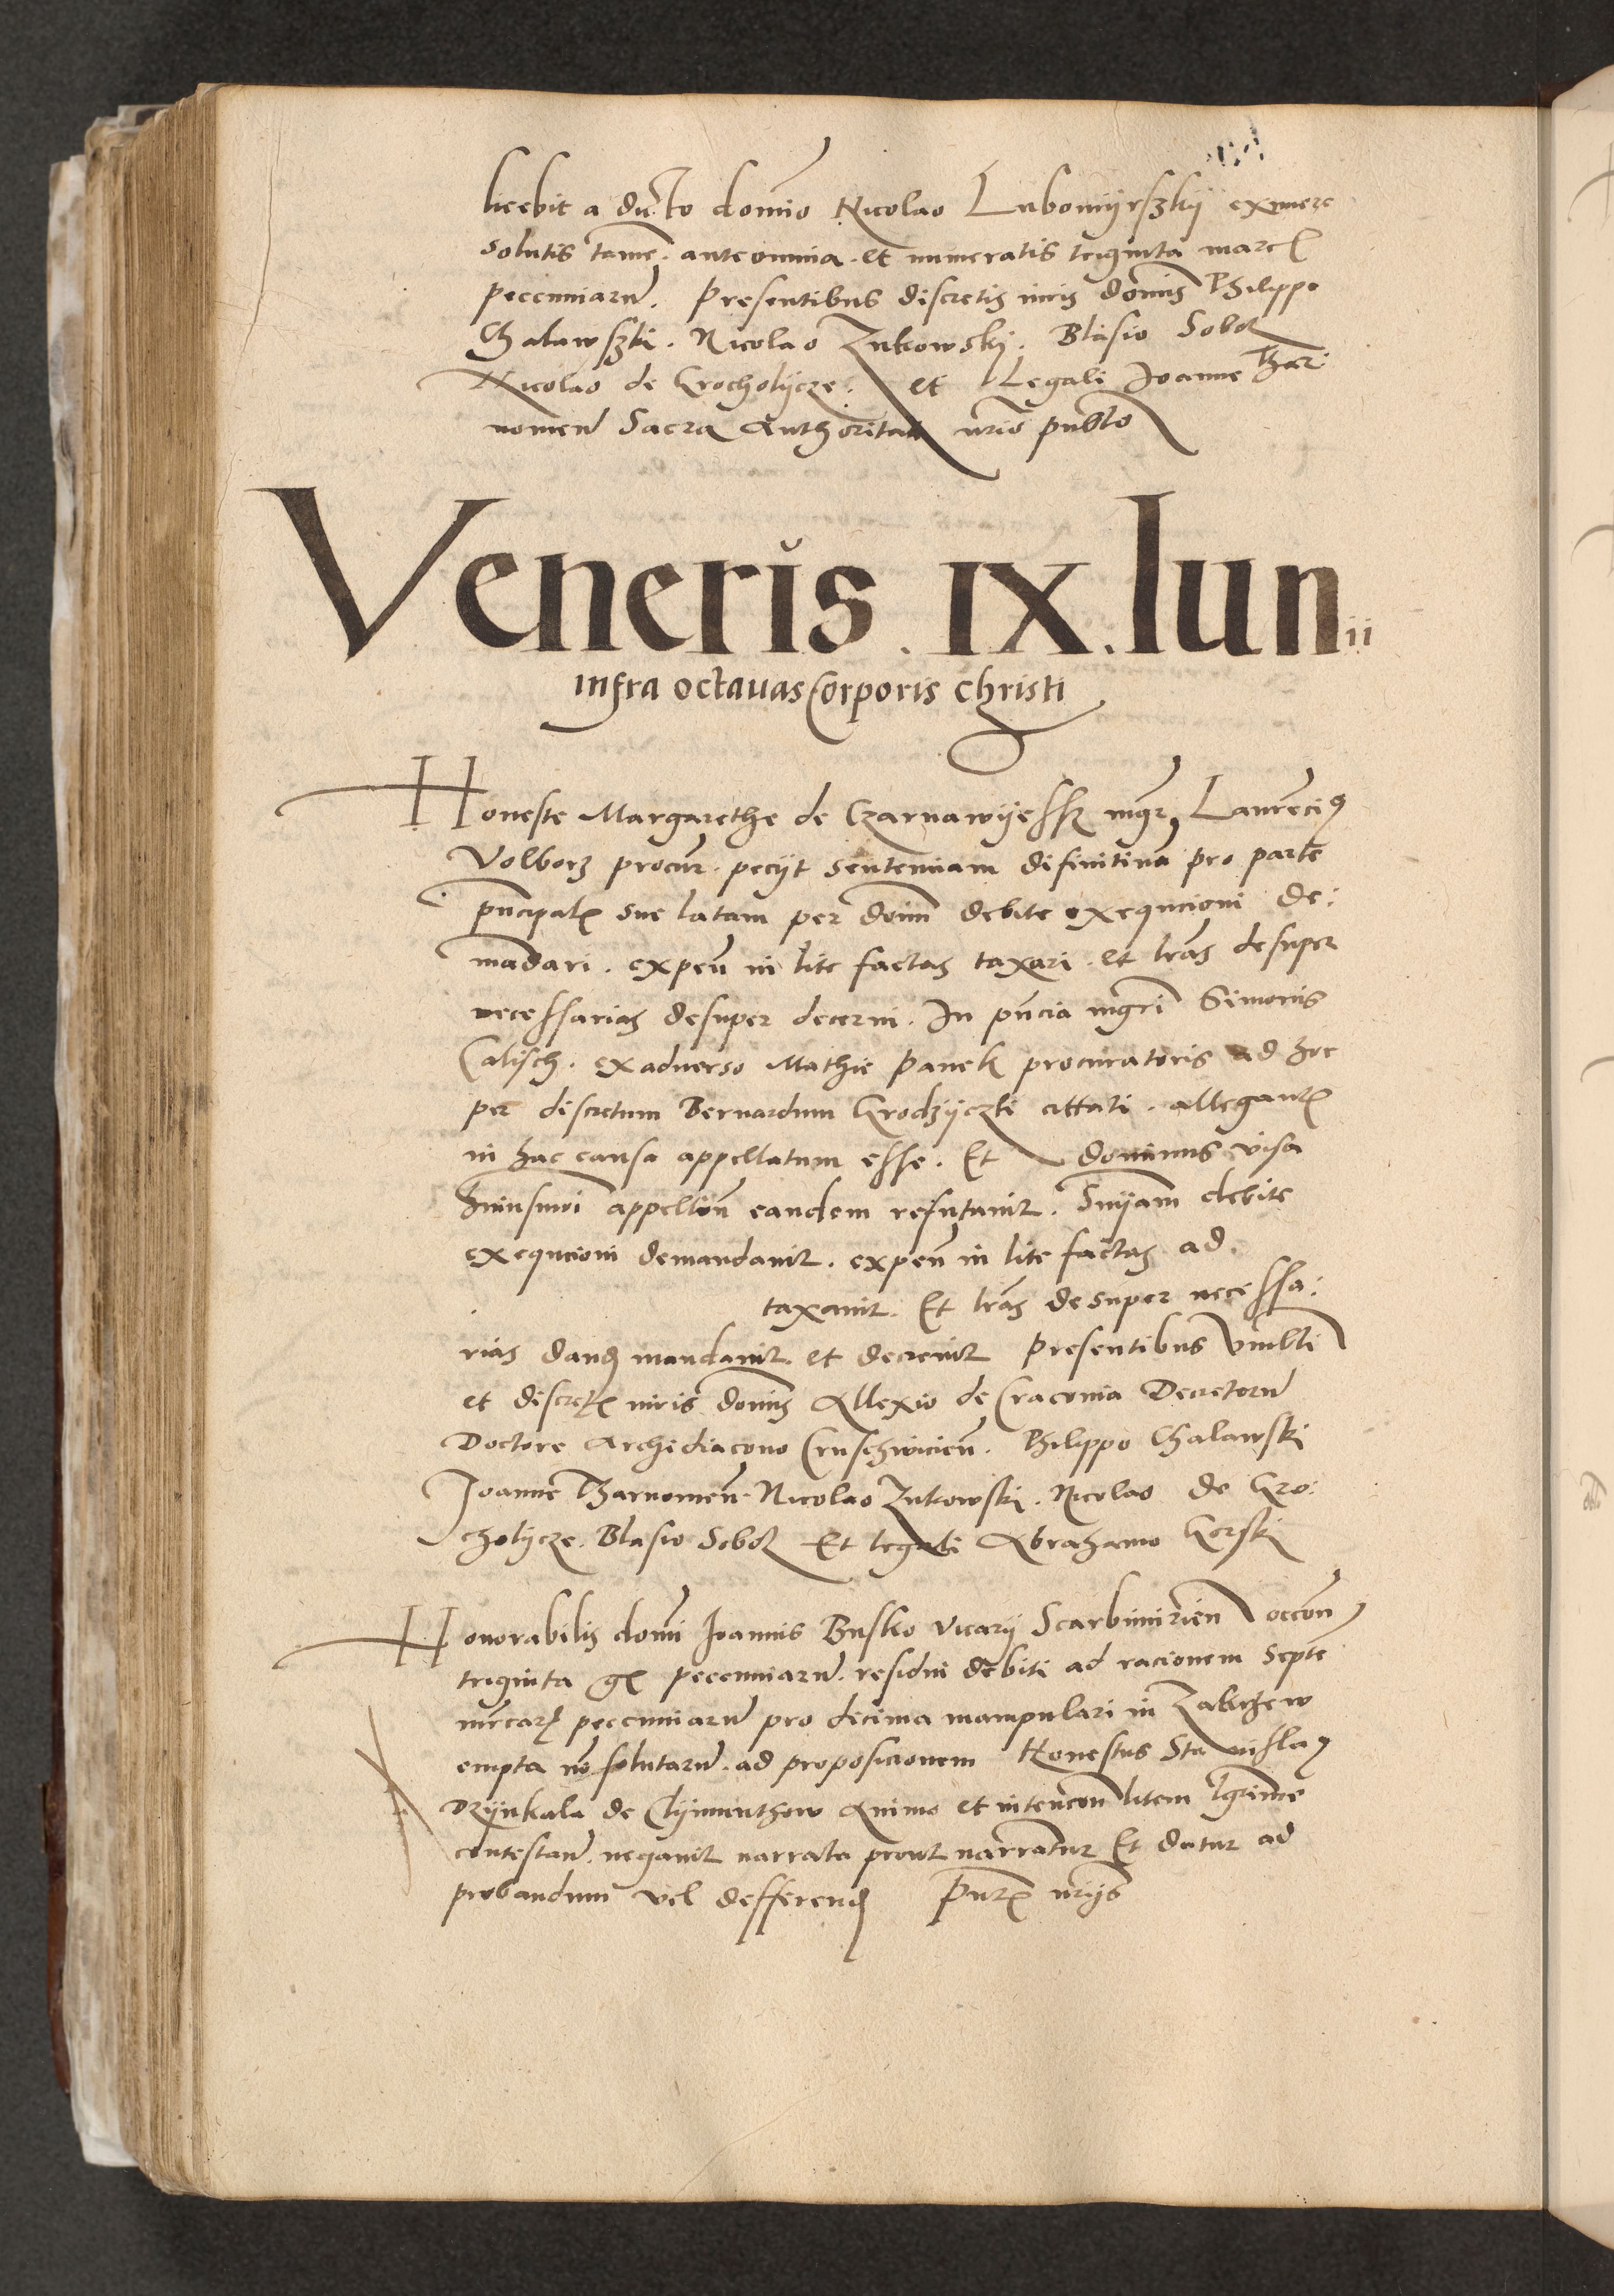 licebit a dicto domino Nicolao Lubomyrszky eximere
solutis tamen . ante omnia . et numeratis triginta marc
pecunniarum . Presentibus discretis viris dominis Philippo
Chalawszki . Nicolao Zukowski . Blasio Sobol
Nicolao de Grocholycze . et Legali Joanne Thar:
nomen Sacra Authoritate nrio publco
Veneris . IX . Iunii
infra octauas Corporis Christi
Honeste Margarethe de Czarnawyessz mgr Laurencius
Volborz procur . pecyt sentenciam difinitiuam pro parte
principal sue latam per domin debite exequcioni de:
mandari . expen in lite factas taxari . et lras desuper
necessarias desuper decerni . In pncia mgri Simonis
Calisch . exaduerso Mathie Panek procuratoris ad hoc
per discretum Bernardum Grodzyczki cittati . allegant
in hac causa appellatum esse . Et dominus visa
huiusmoi appellon eandem refutauit . Snyam debite
exequcioni demandauit . expen in lite factas ad
taxauit . Et lras desuper necessa:
rias dand mandauit . et decreuit Presentibus Vnbli
et discret viris domis Allexio de Cracouia Decretorum
Doctore Archidiacono Cruschwicien . Philippo Chalawski
Joanne Tharnomen . Nicolao Zukowski . Nicolao de Gro:
cholycze . Blasio Sobol Et legali Abrahamo Gorski
Honorabilis domi Joannis Busko Vicarii Scarbimirien occon
triginta gr pecunniarum . residui debiti ad racionem septe
mrcar pecunniarum pro decima manipulari in Zakrzew
empta no solutarum . ad proposicionem Honestus Stanislaus
Dzynkala de Clymunthow Animo et intencon litem lgtime
contestan . negauit narrata prout narrantur Et datur ad
probandum vel defferend Pntr vriis